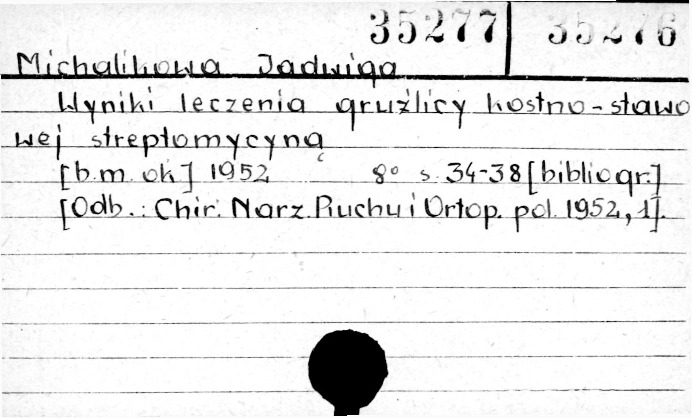 35277 35276
Michalikowa Jadwiga
Wyniki leczenia gruźlicy kostno-stawo
wej streptomycyną
[b.m. ok] 1952 8° s. 34-38 [bibliogr.]
[Odb.: Chir. Narz. Ruchu i Ortop. pol. 1952, 1].